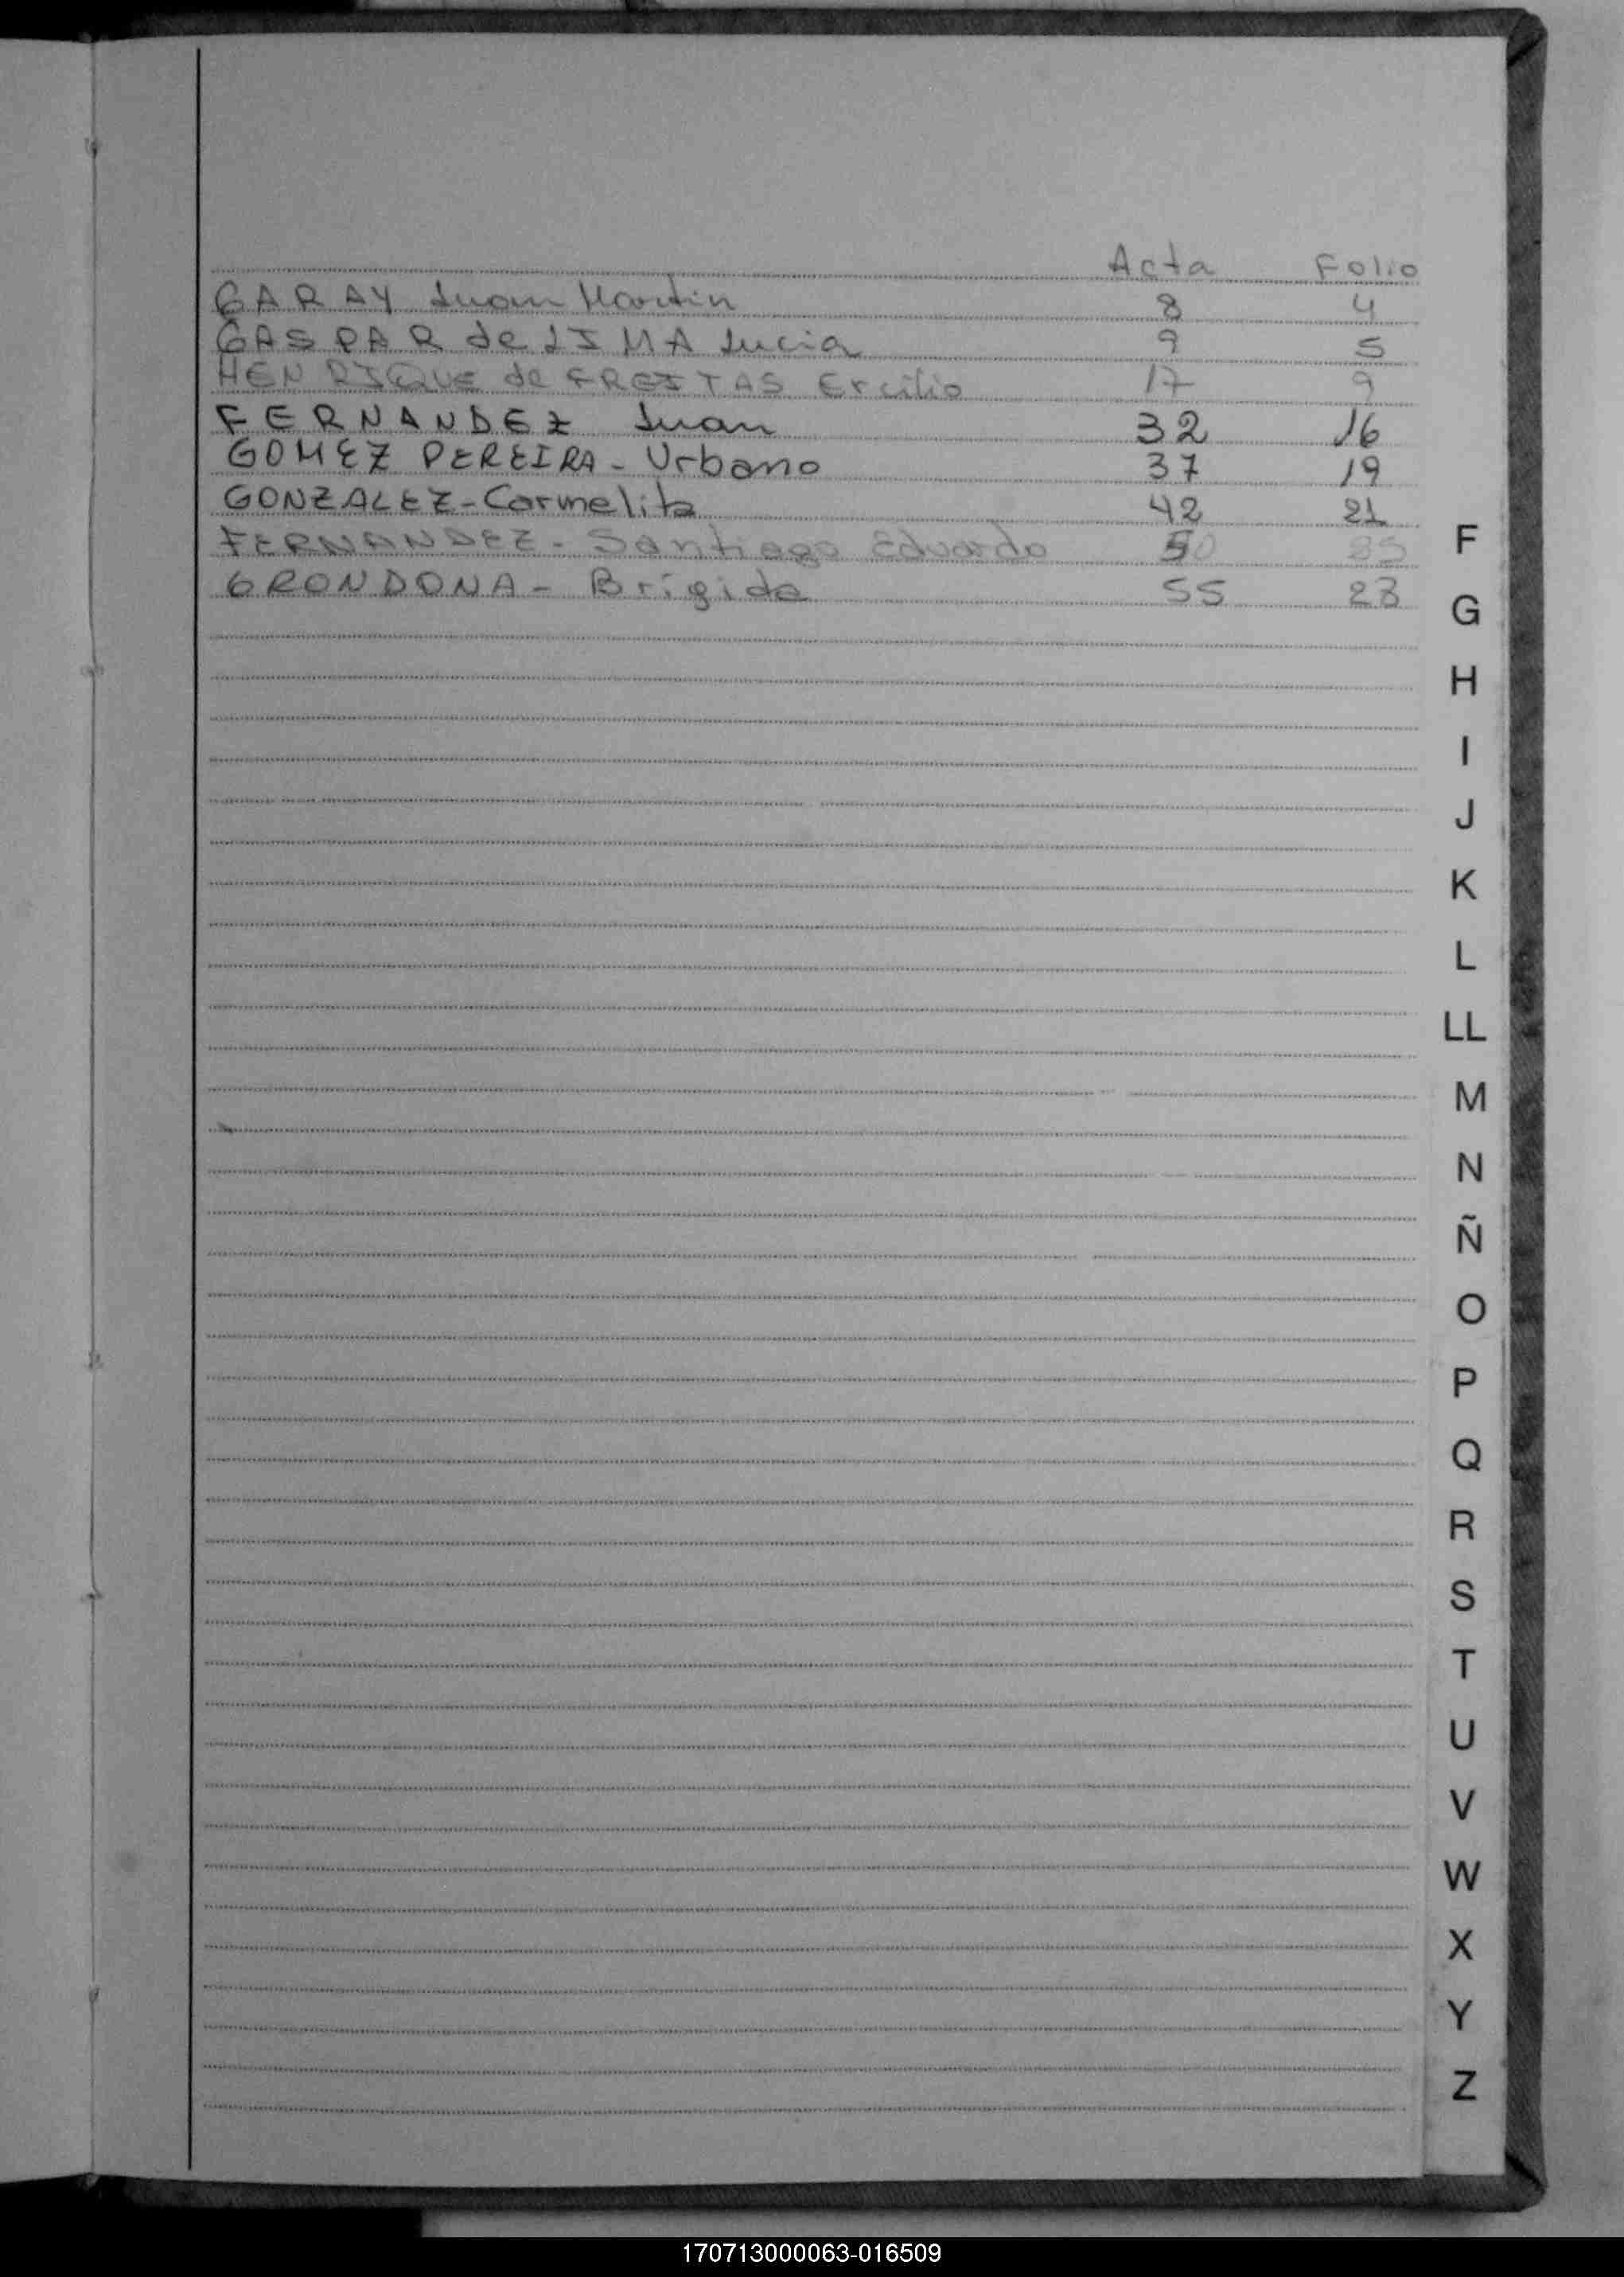 Acta Folio
GARAY Juan Martin 8 4
GASPAR de LIMA Lucia 9 5
HENRIQUE de FREITAS Ercilio 17 9
FERNANDEZ Juan 32 16
GOMEZ PEREIRA - Urbano 37 19
GONZALEZ - Carmelita 42 21
FERNANDEZ - Santiago Eduardo 50 25
GRONDONA - Brigida 55 28
F
G
H
I
J
K
L
LL
M
N
Ñ
O
P
Q
R
S
T
U
V
W
X
Y
Z
170713000063-016509